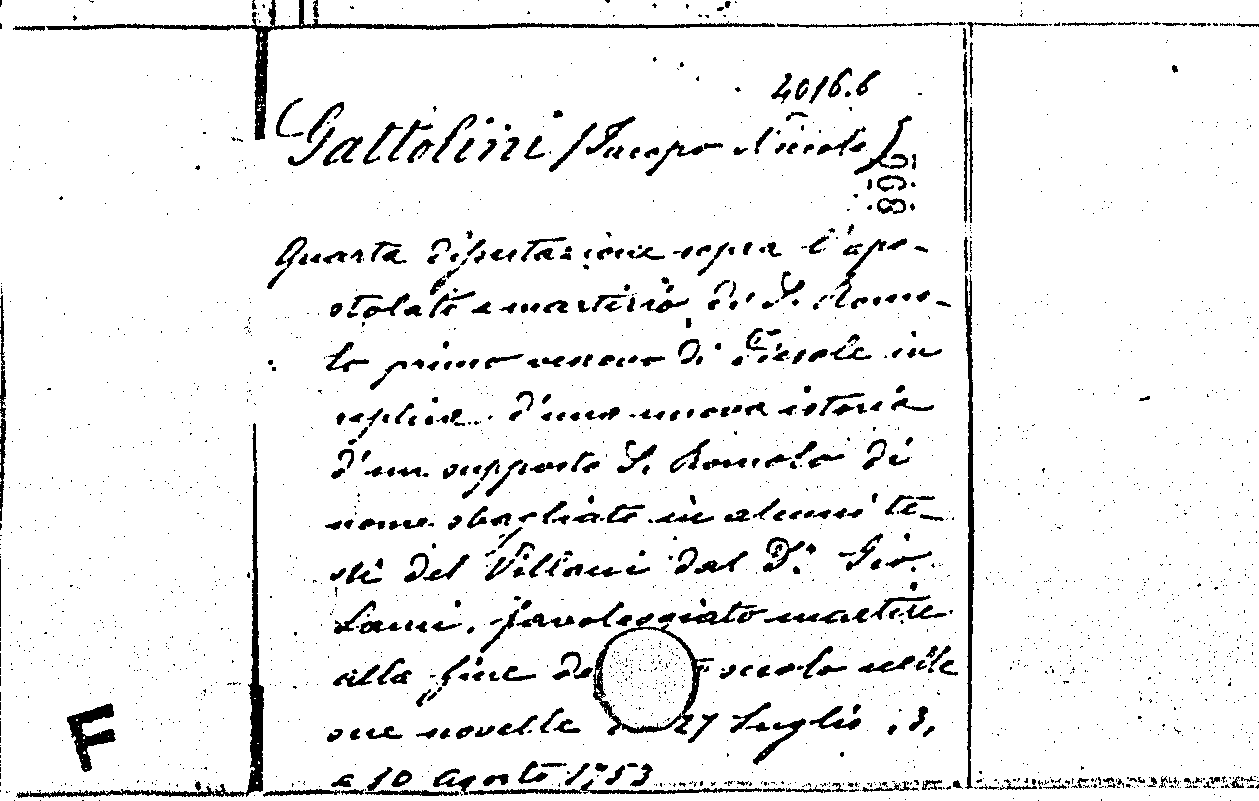 4016.6
Gattolini (Jacopo Nicola)
896
Quarta dissertazione sopra l'apo-
stolato e martirio di S. Romo-
lo primo vescovo di Fiesole in
replica d'una nuova istoria
d'un supposto S. Romolo di
nome sbagliato in alcuni te-
sti del Villani dal D.r Gio.
Lami, favoleggiato martire
alla fine del secolo nelle
sue novelle 27 Luglio, 3,
e 10 Agosto 1753
F